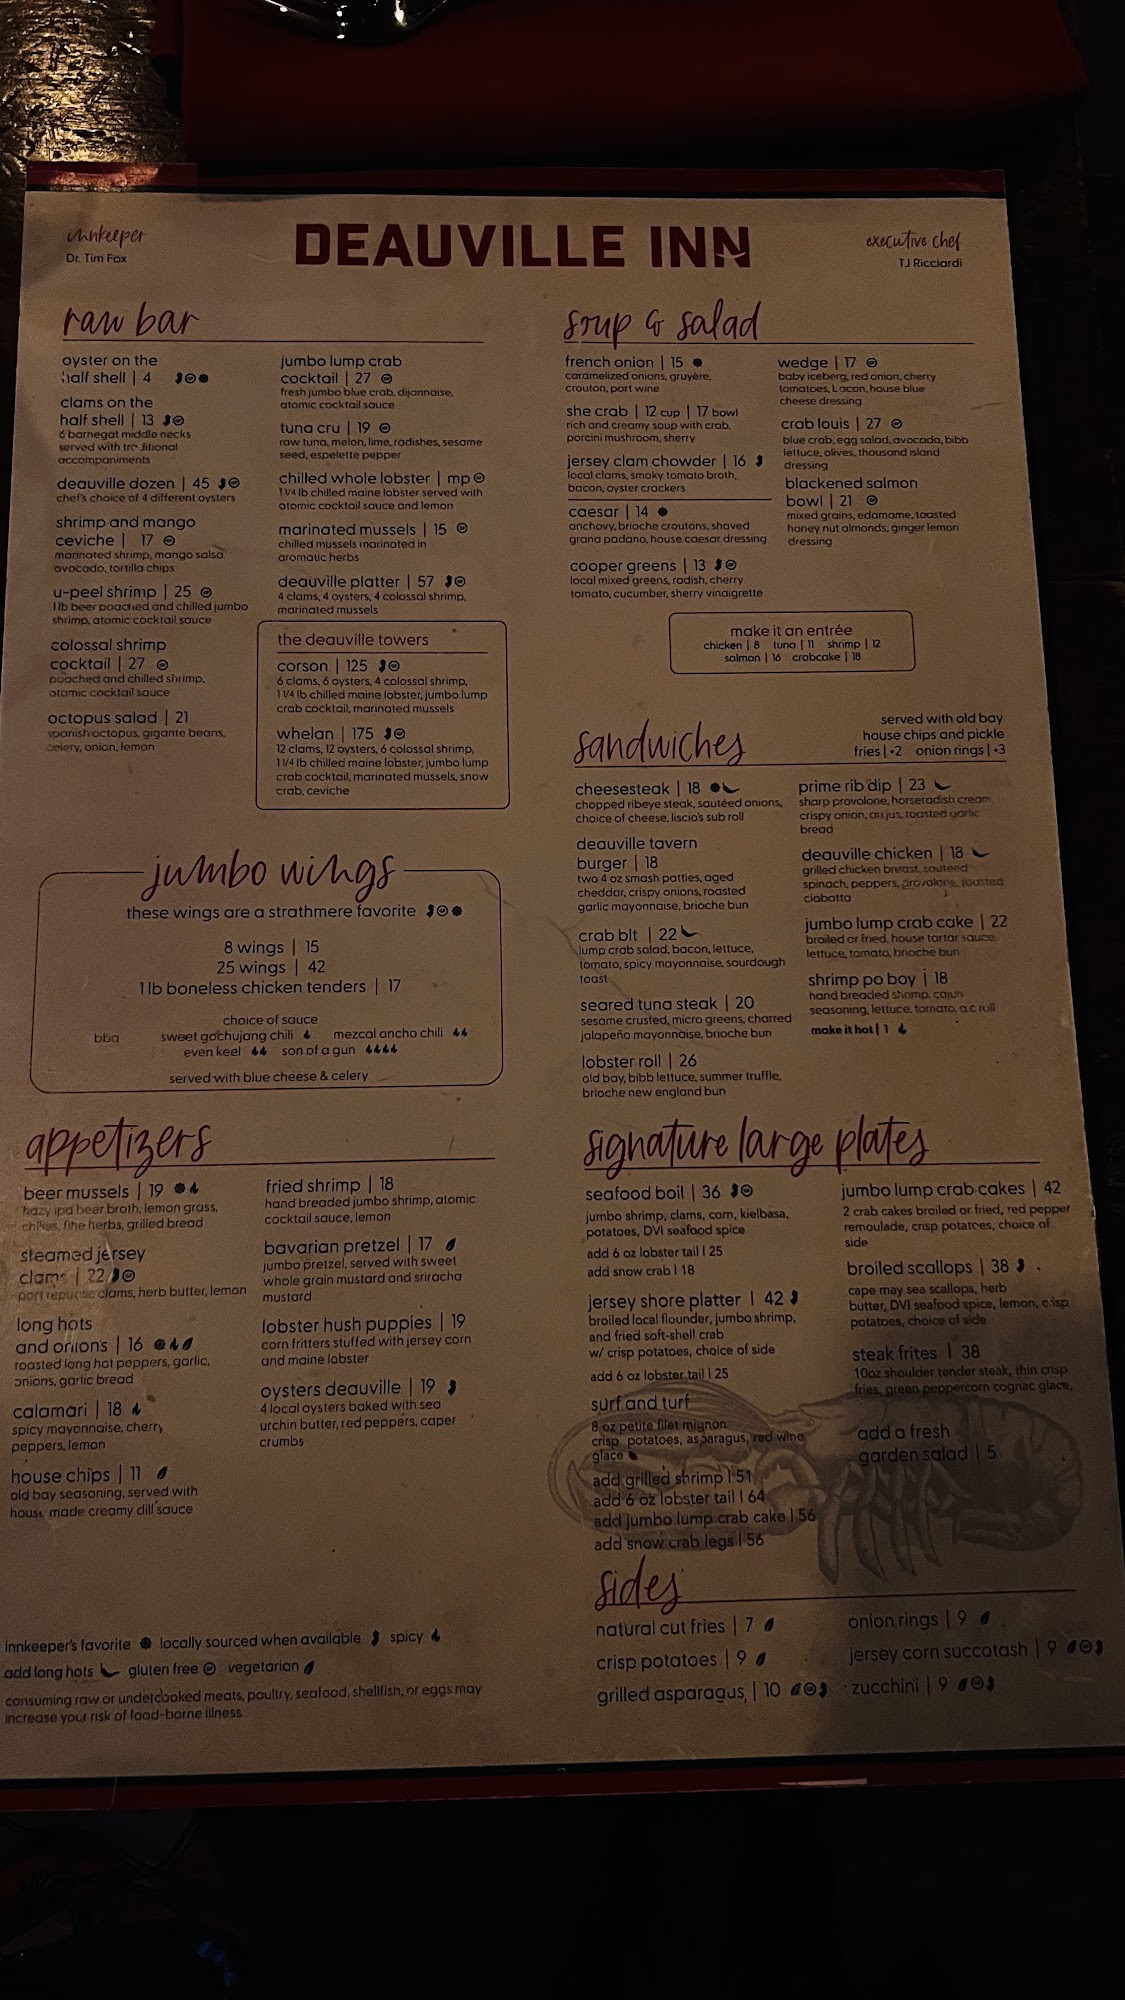 innkeeper
Dr. Tim Fox
DEAUVILLE INN
executive chef
TJ Ricciardi
raw bar
oyster on the
half shell | 4
clams on the
half shell | 13
6 barnegat middle necks
served with traditional
accompaniments
deauville dozen | 45
chef's choice of 4 different oysters
shrimp and mango
ceviche | 17
marinated shrimp, mango salsa
avocado, tortilla chips
u-peel shrimp | 25
1 lb beer poached and chilled jumbo
shrimp, atomic cocktail sauce
colossal shrimp
cocktail | 27
poached and chilled shrimp,
atomic cocktail sauce
octopus salad | 21
spanish octopus, gigante beans,
celery, onion, lemon
jumbo lump crab
cocktail | 27
fresh jumbo blue crab, dijonnaise,
atomic cocktail sauce
tuna cru | 19
raw tuna, melon, lime, radishes, sesame
seed, espelette pepper
chilled whole lobster | mp
1 1/4 lb chilled maine lobster served with
atomic cocktail sauce and lemon
marinated mussels | 15
chilled mussels marinated in
aromatic herbs
deauville platter | 57
4 clams, 4 oysters, 4 colossal shrimp,
marinated mussels
the deauville towers
corson | 125
6 clams, 6 oysters, 4 colossal shrimp,
1 1/4 lb chilled maine lobster, jumbo lump
crab cocktail, marinated mussels
whelan | 175
12 clams, 12 oysters, 6 colossal shrimp,
1 1/4 lb chilled maine lobster, jumbo lump
crab cocktail, marinated mussels, snow
crab, ceviche
soup & salad
french onion | 15
caramelized onions, gruyère,
crouton, port wine
she crab | 12 cup | 17 bowl
rich and creamy soup with crab,
porcini mushroom, sherry
jersey clam chowder | 16
local clams, smoky tomato broth,
bacon, oyster crackers
caesar | 14
anchovy, brioche croutons, shaved
grana padano, house caesar dressing
cooper greens | 13
local mixed greens, radish, cherry
tomato, cucumber, sherry vinaigrette
wedge | 17
baby iceberg, red onion, cherry
tomatoes, bacon, house blue
cheese dressing
crab louis | 27
blue crab, egg salad, avocado, bibb
lettuce, olives, thousand island
dressing
blackened salmon
bowl | 21
mixed grains, edamame, toasted
honey nut almonds, ginger lemon
dressing
make it an entrée
chicken | 8 tuna | 11 shrimp | 12
salmon | 16 crabcake | 18
sandwiches
served with old bay
house chips and pickle
fries | +2 onion rings | +3
cheesesteak | 18
chopped ribeye steak, sautéed onions,
choice of cheese, liscio's sub roll
deauville tavern
burger | 18
two 4 oz smash patties, aged
cheddar, crispy onions, roasted
garlic mayonnaise, brioche bun
crab blt | 22
lump crab salad, bacon, lettuce,
tomato, spicy mayonnaise, sourdough
toast
seared tuna steak | 20
sesame crusted, micro greens, charred
jalapeño mayonnaise, brioche bun
lobster roll | 26
old bay, bibb lettuce, summer truffle,
brioche new england bun
prime rib dip | 23
sharp provolone, horseradish cream,
crispy onion, au jus, toasted garlic
bread
deauville chicken | 18
grilled chicken breast, sauteed
spinach, peppers, provolone, toasted
ciabatta
jumbo lump crab cake | 22
broiled or fried, house tartar sauce,
lettuce, tomato, brioche bun
shrimp po boy | 18
hand breaded shrimp, cajun
seasoning, lettuce, tomato, a.c roll
make it hot | 1
jumbo wings
these wings are a strathmere favorite
8 wings | 15
25 wings | 42
1 lb boneless chicken tenders | 17
choice of sauce
bbq sweet gochujang chili mezcal ancho chili
even keel son of a gun
served with blue cheese & celery
appetizers
beer mussels | 19
hazy ipa beer broth, lemon grass,
chilies, fine herbs, grilled bread
steamed jersey
clams | 22
clams, herb butter, lemon
long hots
and onions | 16
roasted long hot peppers, garlic,
onions, garlic bread
calamari | 18
spicy mayonnaise, cherry
peppers, lemon
house chips | 11
old bay seasoning, served with
house made creamy dill sauce
fried shrimp | 18
hand breaded jumbo shrimp, atomic
cocktail sauce, lemon
bavarian pretzel | 17
jumbo pretzel, served with sweet
whole grain mustard and sriracha
mustard
lobster hush puppies | 19
corn fritters stuffed with jersey corn
and maine lobster
oysters deauville | 19
4 local oysters baked with sea
urchin butter, red peppers, caper
crumbs
signature large plates
seafood boil | 36
jumbo shrimp, clams, corn, kielbasa,
potatoes, DVI seafood spice
add 6 oz lobster tail | 25
add snow crab | 18
jersey shore platter | 42
broiled local flounder, jumbo shrimp,
and fried soft-shell crab
w/ crisp potatoes, choice of side
add 6 oz lobster tail | 25
surf and turf
8 oz petite filet mignon
crisp potatoes, asparagus, red wine
glace
add grilled shrimp | 51
add 6 oz lobster tail | 64
add jumbo lump crab cake | 56
add snow crab legs | 56
jumbo lump crab cakes | 42
2 crab cakes broiled or fried, red pepper
remoulade, crisp potatoes, choice of
side
broiled scallops | 38
cape may sea scallops, herb
butter, DVI seafood spice, lemon, crisp
potatoes, choice of side
steak frites | 38
10oz shoulder tender steak, thin crisp
fries, green peppercorn cognac glace,
add a fresh
garden salad | 5
sides
natural cut fries | 7
crisp potatoes | 9
grilled asparagus, | 10
onion rings | 9
jersey corn succotash | 9
zucchini | 9
innkeeper's favorite locally sourced when available spicy
add long hots gluten free vegetarian
consuming raw or undercooked meats, poultry, seafood, shellfish, or eggs may
increase your risk of food-borne illness